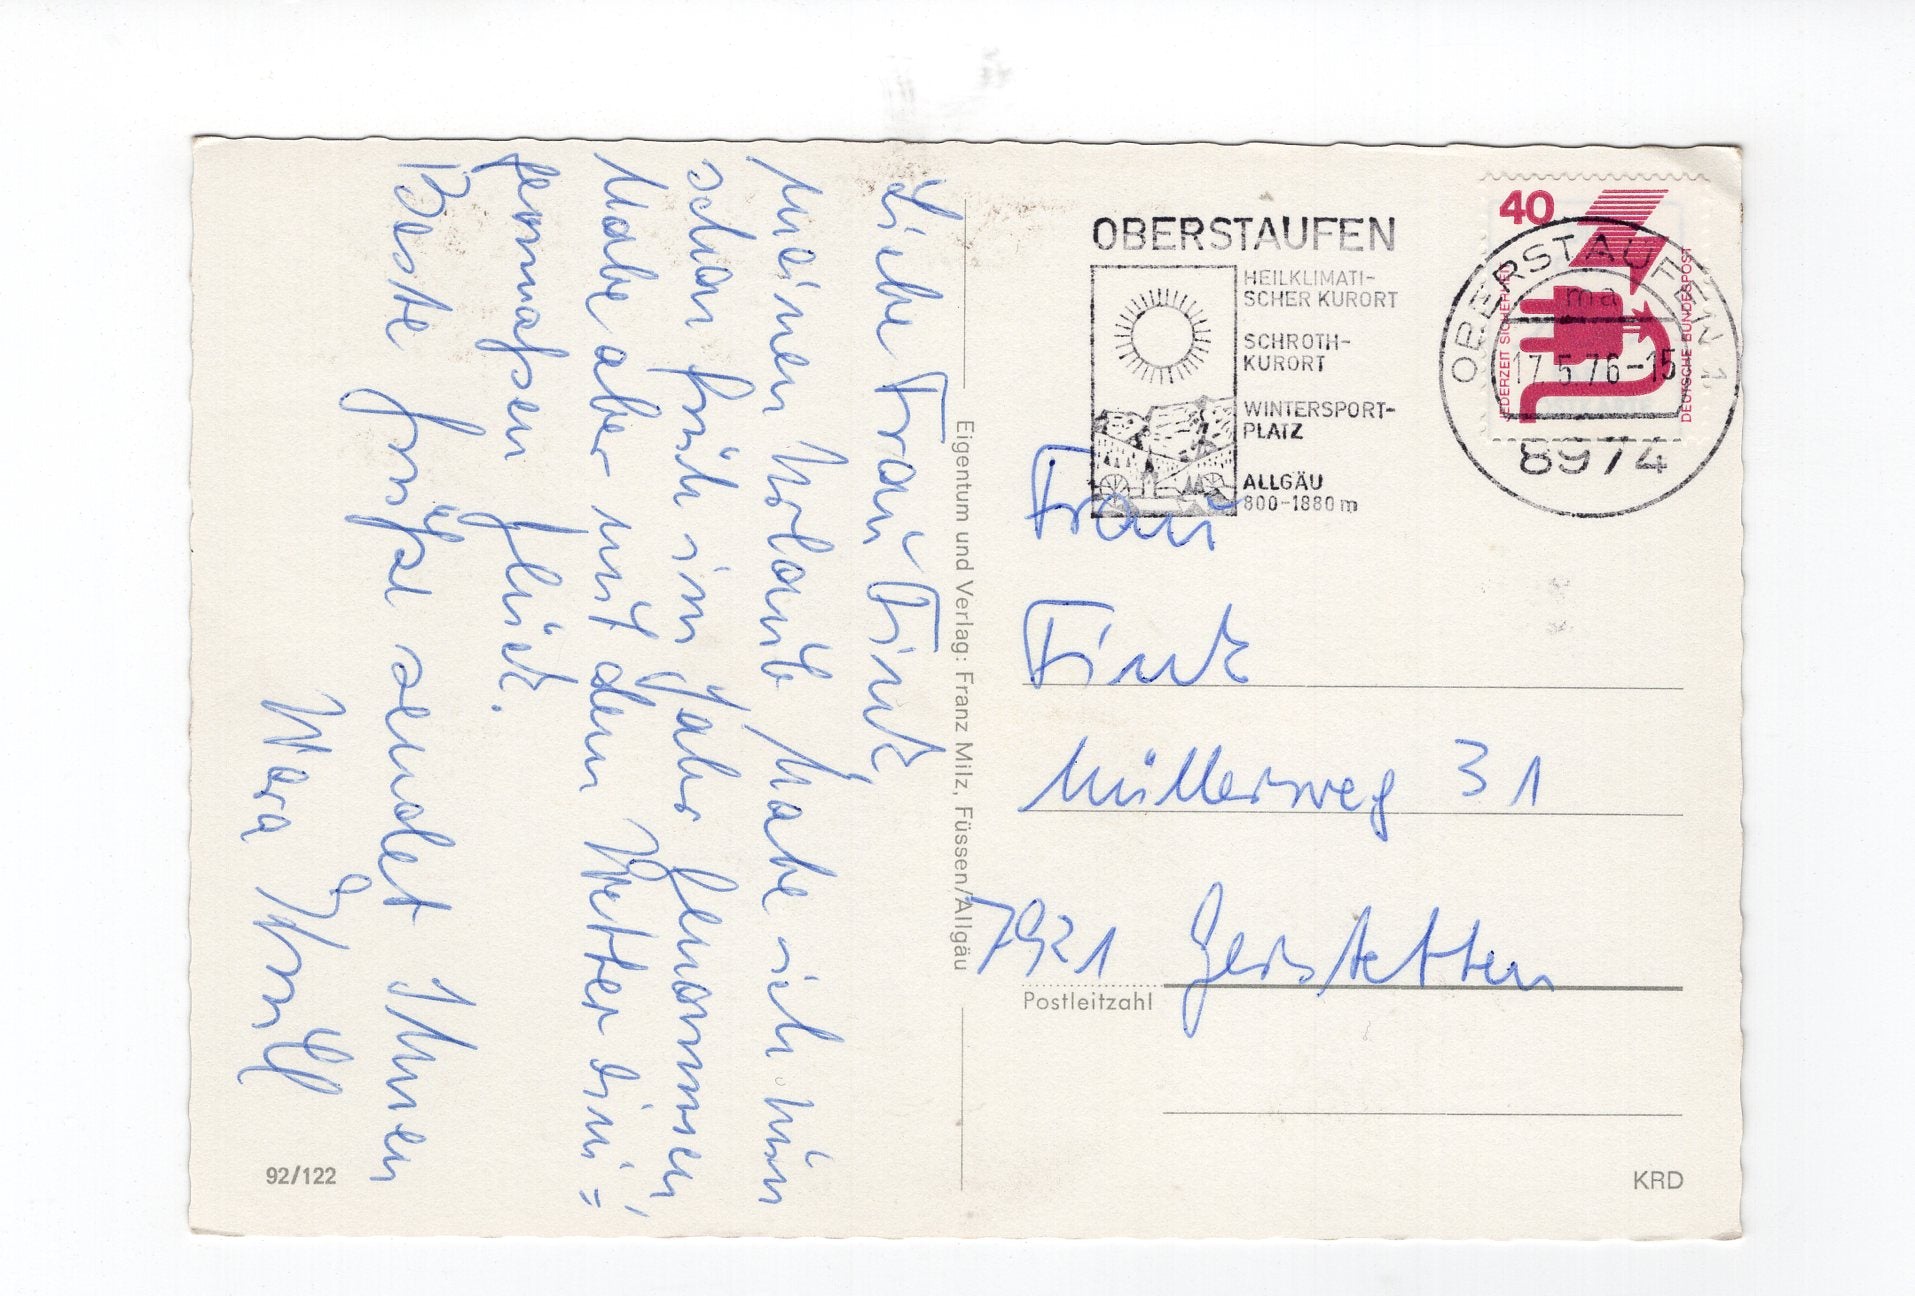 Liebe Frau Fink,
Meinen Urlaub habe ich nun
schon früh im Jahr genommen,
Habe aber mit dem Wetter eini=
germaßen Glück.
Beste Grüße sendet Ihnen
Wera
Eigentum und Verlag: Franz Milz, Füssen/Allgäu
92/122
OBERSTAUFEN
HEILKLIMATI-
SCHER KURORT
SCHROTH-
KURORT
WINTERSPORT-
PLATZ
ALLGÄU
800-1880m
40
JEDERZEIT SICHERHEIT
DEUTSCHE BUNDESPOST
OBERSTAUFEN 1
ma
17.5.76-15
8974
Frau
Fink
Müllersweg 31
7921 Gerstetten
Postleitzahl
KRD